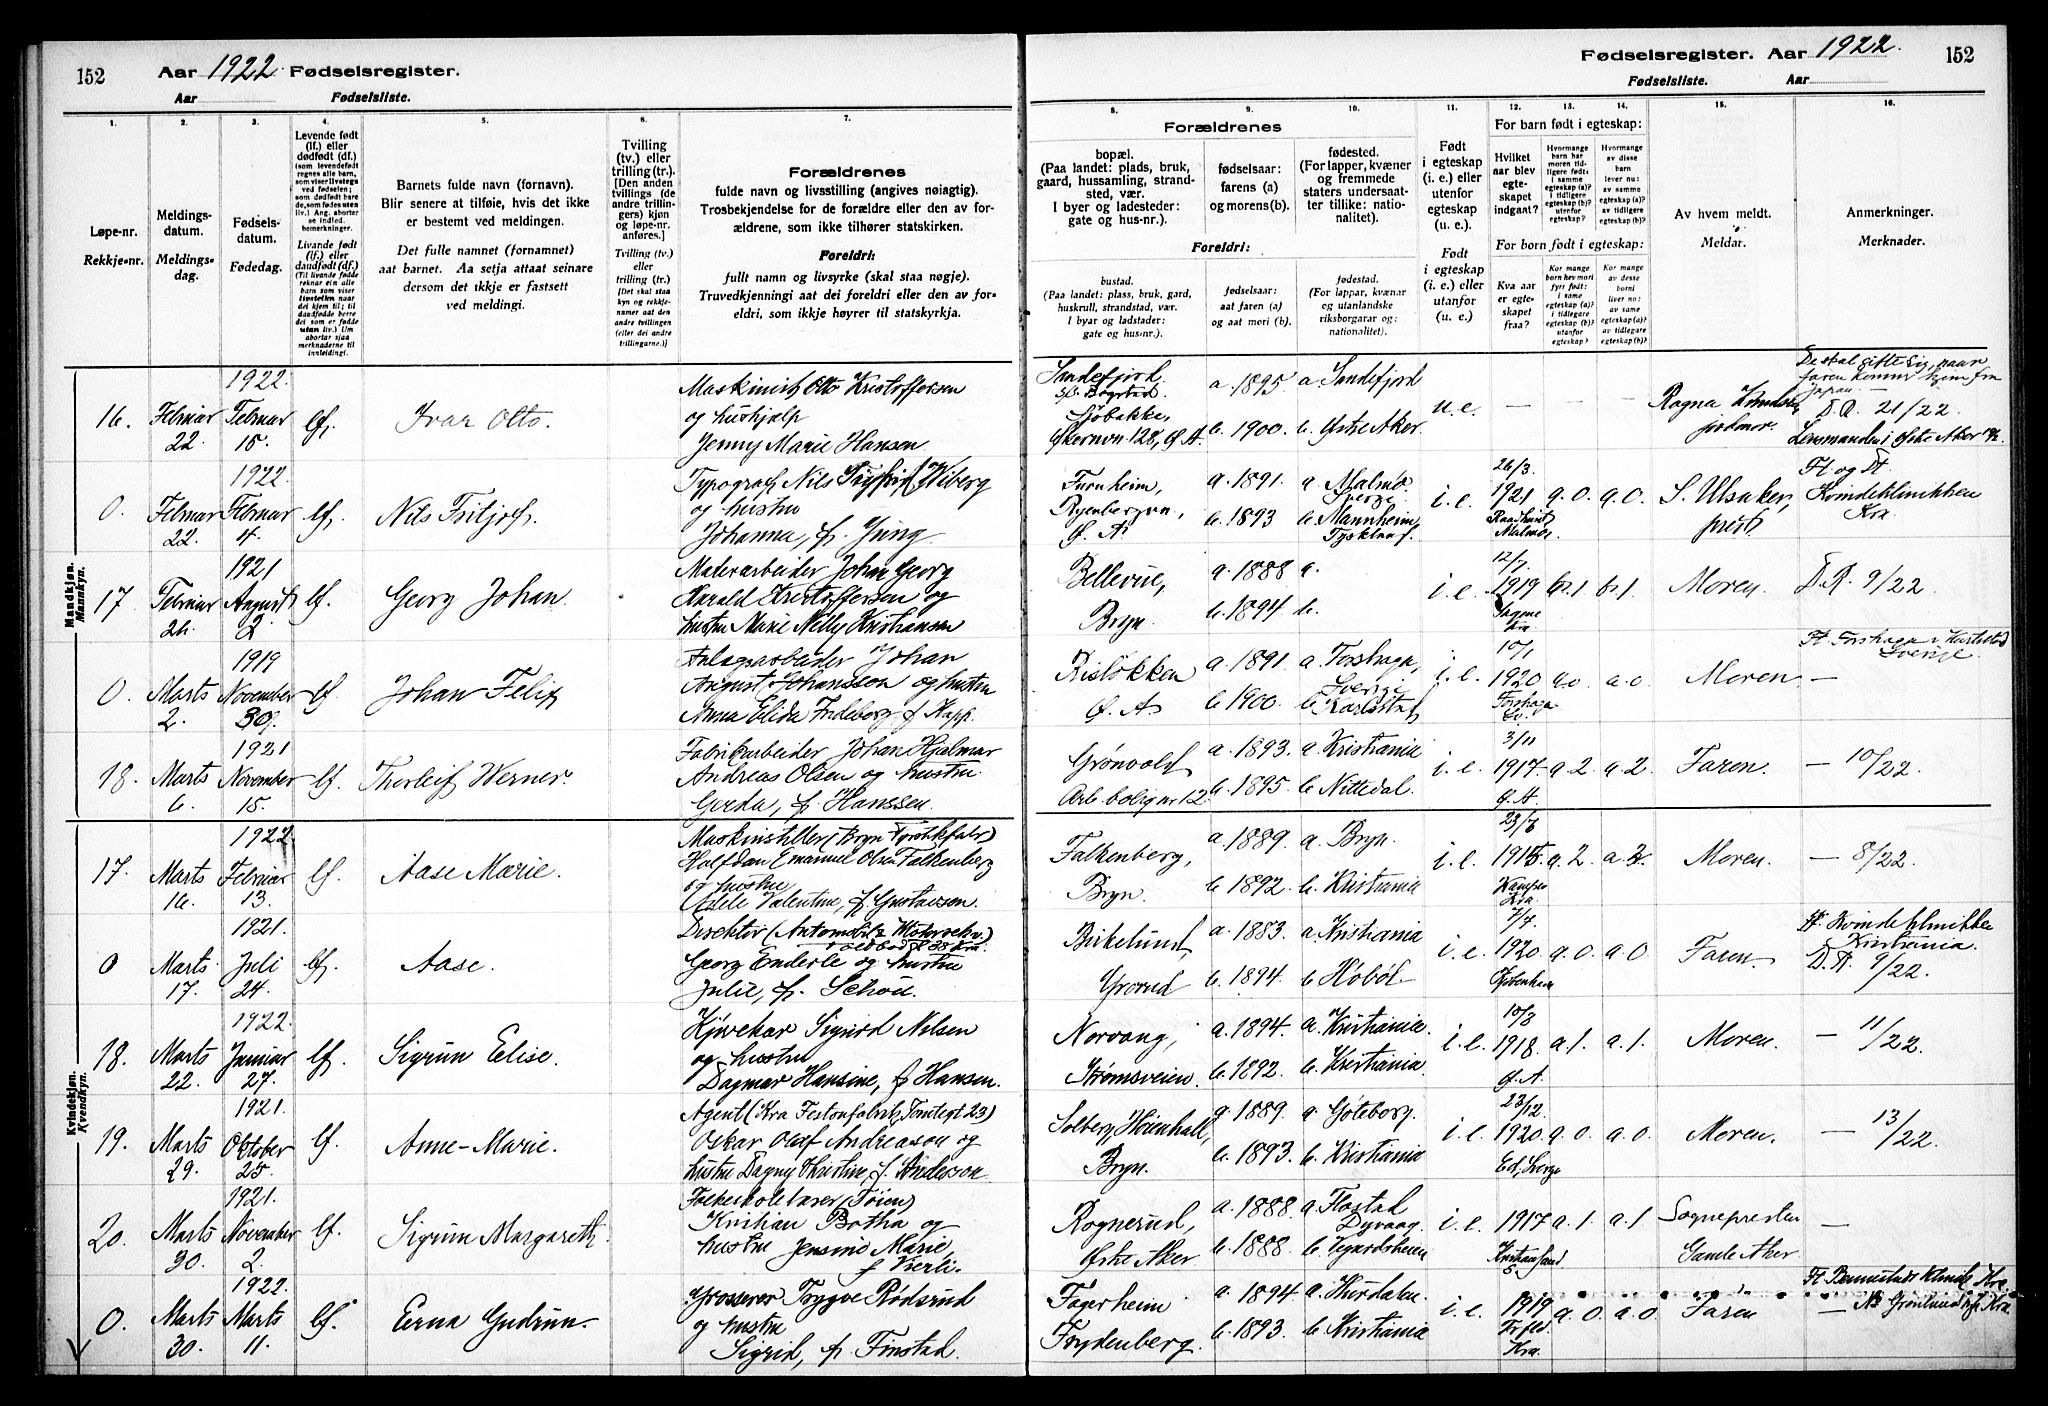 152
Aar 1922. Fødselsregister.
Aar Fødselsliste.
1.
2.
3.
4.
5.
6.
7.
Løpe-nr.
Rekkje-nr.
Meldings-
datum.
Meldings-
dag.
Fødsels-
datum.
Fødedag.
Levende født
(lf.) eller
dødfødt (df.)
Livande fødd
(lf.) eller
daudfødt (df.)
Barnets fulde navn (fornavn).
Blir senere at tilføie, hvis det ikke
er bestemt ved meldingen.
Det fulle namnet (fornamnet)
aat barnet. Aa setja attaat seinare
dersom det ikkje er fastsett
ved meldingi.
Tvilling
(tv.) eller
trilling (tr.).
[Den anden
tvillings (de
andre trillin-
gers) kjøn
og løpe-nr.
anføres.]
Tvilling (tv.)
eller
trilling (tr.)
Forældrenes
fulde navn og livsstilling (angives nøiagtig).
Trosbekjendelse for de forældre eller den av for-
ældrene, som ikke tilhører statskirken.
Foreldri:
fullt namn og livsyrke (skal staa nøgje).
Truvedkjenningi aat dei foreldri eller den av for-
eldri, som ikkje høyrer til statskyrkja.
Mandkjøn.
Mannkyn.
16. Februar 22. 1922. Februar 15. lf. Ivar Otto.
Maskinist Otto Kristoffersen
og hushjælp
Jenny Marie Hansen
0. Februar 22. 1922 Februar 4. lf. Nils Fritjof.
Typograf Nils Wiberg
og hustru
Johanna, f. Jung.
17 Februar 1921 August 2. lf. Georg Johan
Malerarbeider Johan Georg
Harald Kristoffersen og
hustru Marie Nelly Kristiansen
0. Marts 2. 1919 November lf. Johan Felix
Anlægsarbeider Johan
August Johansson og hustru
Anna Elida Indeborg f. Kapp.
18. Marts 6. 1921 November 15. lf. Thorleif Werner.
Fabrikarbeider Johan Hjalmar
Andreas Olsen og hustru
Gerda, f. Hanssen.
Kvindekjøn.
Kvendkyn.
17. Marts 16. 1922 Februar 13. lf. Aase Marie.
Maskinstiller (Bryn
Halfdan Emanuel Olsen Falkenberg
og hustru
Adele Valentine, f. Gustavson.
0 Marts 17. 1921. Juli 24. lf. Aase.
Direktør (
Georg Enderle og hustru
Julie, f. Schou.
18. Marts 22. 1922. Januar 27. lf. Sigrun Elise.
Kjørekar Sigurd Nilsen
og hustru
Dagmar Hansine, f. Hansen.
19. Marts 29. 1921. Oktober 25. lf. Anne-Marie.
Agent (Kra Festonfabrik, Tomtegt 23)
Oskar Olaf Andreason og
hustru Dagny f. Anderson
20. Marts 30. 1921. November 2. lf. Sigrun Margareth.
Folkeskolelærer (Tøien)
Kristian Botha og
hustru Jensine Marie,
f. Vierli.
0. Marts 30. 1922. Marts 11. lf. Erna Gudrun
Grosserer Trygve Rødsrud
og hustru
Sigrid, f. Finstad.
Fødselsregister. Aar 1922. 152
Fødselsliste. Aar
8.
9.
10.
11.
12.
13.
14.
15.
16.
Forældrenes
bopæl.
(Paa landet: plads, bruk,
gaard, hussamling, strand-
sted, vær.
I byer og ladesteder:
gate og hus-nr.).
fødselsaar:
farens (a)
og morens (b).
fødested.
(For lapper, kvæner
og fremmede
staters undersaat-
ter tillike: natio-
nalitet).
Foreldri:
bustad.
(Paa landet: plass, bruk, gard,
huskrull, strandstad, vær.
I byar og ladstader:
gate og hus-nr.).
fødselsaar:
aat faren (a)
og aat mori (b).
fødestad.
(For lappar, kvænar
og utanlandske
riksborgarar og:
nationalitet).
Født
i egteskap
(i. e.) eller
utenfor
egteskap
(u. e.).
Født
i egteskap
(i. e.) eller
utanfor
(u. e.).
For barn født i egteskap:
Hvilket
aar blev
egte-
skapet
indgaat?
For born født i egteskap:
Kva aar
er egte-
skapet
fraa?
Av hvem meldt.
Meldar.
Anmerkninger.
Merknader.
Sandefjord
Økernvn. 128, Ø. A.
a. 1895 b. 1900. a. Sandefjord b. Østre Aker. u. e. — — — Ragna jordmor.
De skal gifte sig, naar
faren kommer hjem fra
Japan.
D. R. 21/22
Lensmanden i Østre Aker
Furuheim,
Ryenbergvn.,
Ø. A.
a. 1891. b. 1893 a. Malmø Sverige b. Mannheim, Tyskland. i. e. 26/3. 1921 Malmø. a. 0. a. 0. S. Ulsaker, prest.
Kvindeklinikken
Kra
Bellevue,
Bryn.
a. 1888 b. 1894 a. b. i. e. 12/7. 1919 Sagene Kra b. 1 b. 1. Moren. D. R. 9/22.
Risløkken
Ø. A.
a. 1891. b. 1900. a. Forshaga, Sverige b. Karlstad i. e. 10/1 1920 Forshaga Sv. a. 0 a. 0. Moren. —
Sverige.
Grønvold
Arb. bolig nr 12.
a. 1893. b. 1895 a. Kristiania b. Nittedal. i. e. 3/11 1917. Ø. A. a. 2. a. 2. Faren. — 10/22.
Falkenberg,
Bryn.
a. 1889. b. 1892. a. Bryn. b. Kristiania i. e. Kampen Kra. a. 2. Moren. — 8/22.
Birkelund,
Grorud
a. 1883. b. 1894 a. Kristiania b. Hobøl. i. e. 7/7. 1920. Kjøbenhavn a. 0. a. 0 Faren.
Kvindeklinikken
Kristiania.
D. R. 9/22.
Norvang,
Strømsveien.
a. 1894. b. 1892. a. Kristiania. b. Kristiania. i. e. 10/3 1918. Ø. A. a. 1. a. 1. Moren. — 11/22.
Solberg, Høienhall,
Bryn.
a. 1889. b. 1893. a. Gøteborg. b. Kristiania i. e. 23/12. 1920. Ed, Sverge a. 0. a. 0. Moren. — 13/22.
Rognerud,
Østre Aker
a. 1888 b. 1888. a. Flostad Dypvaag. b. Vegardsheien i. e. 1917 Kristiansand S. a. 1. a. 1 Sognepresten Gamle Aker —
Fagerheim
Frydenberg.
a. 1894 b. 1893. a. Hurdalen b. Kristiania i. e. 1919 Kra. a. 0 a. 0. Faren —